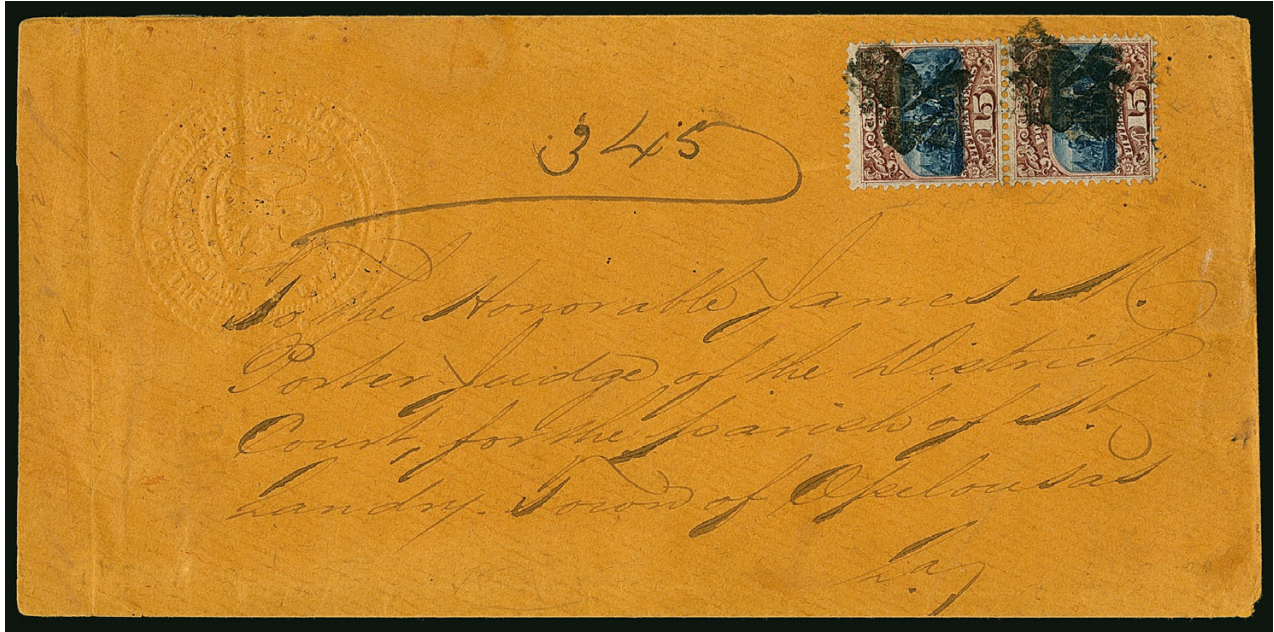 345
To the Honorable James M.
Porter Judge of the District
Court, for the parish of St.
Landry. Town of Opelousas
La,
15 15
OF THE